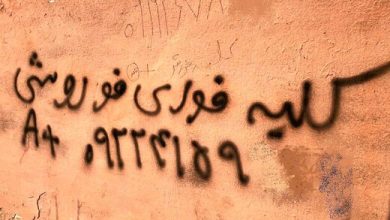 کلیه فوری فوروشی
A+ ۰۹۲۲۴۱۵۹